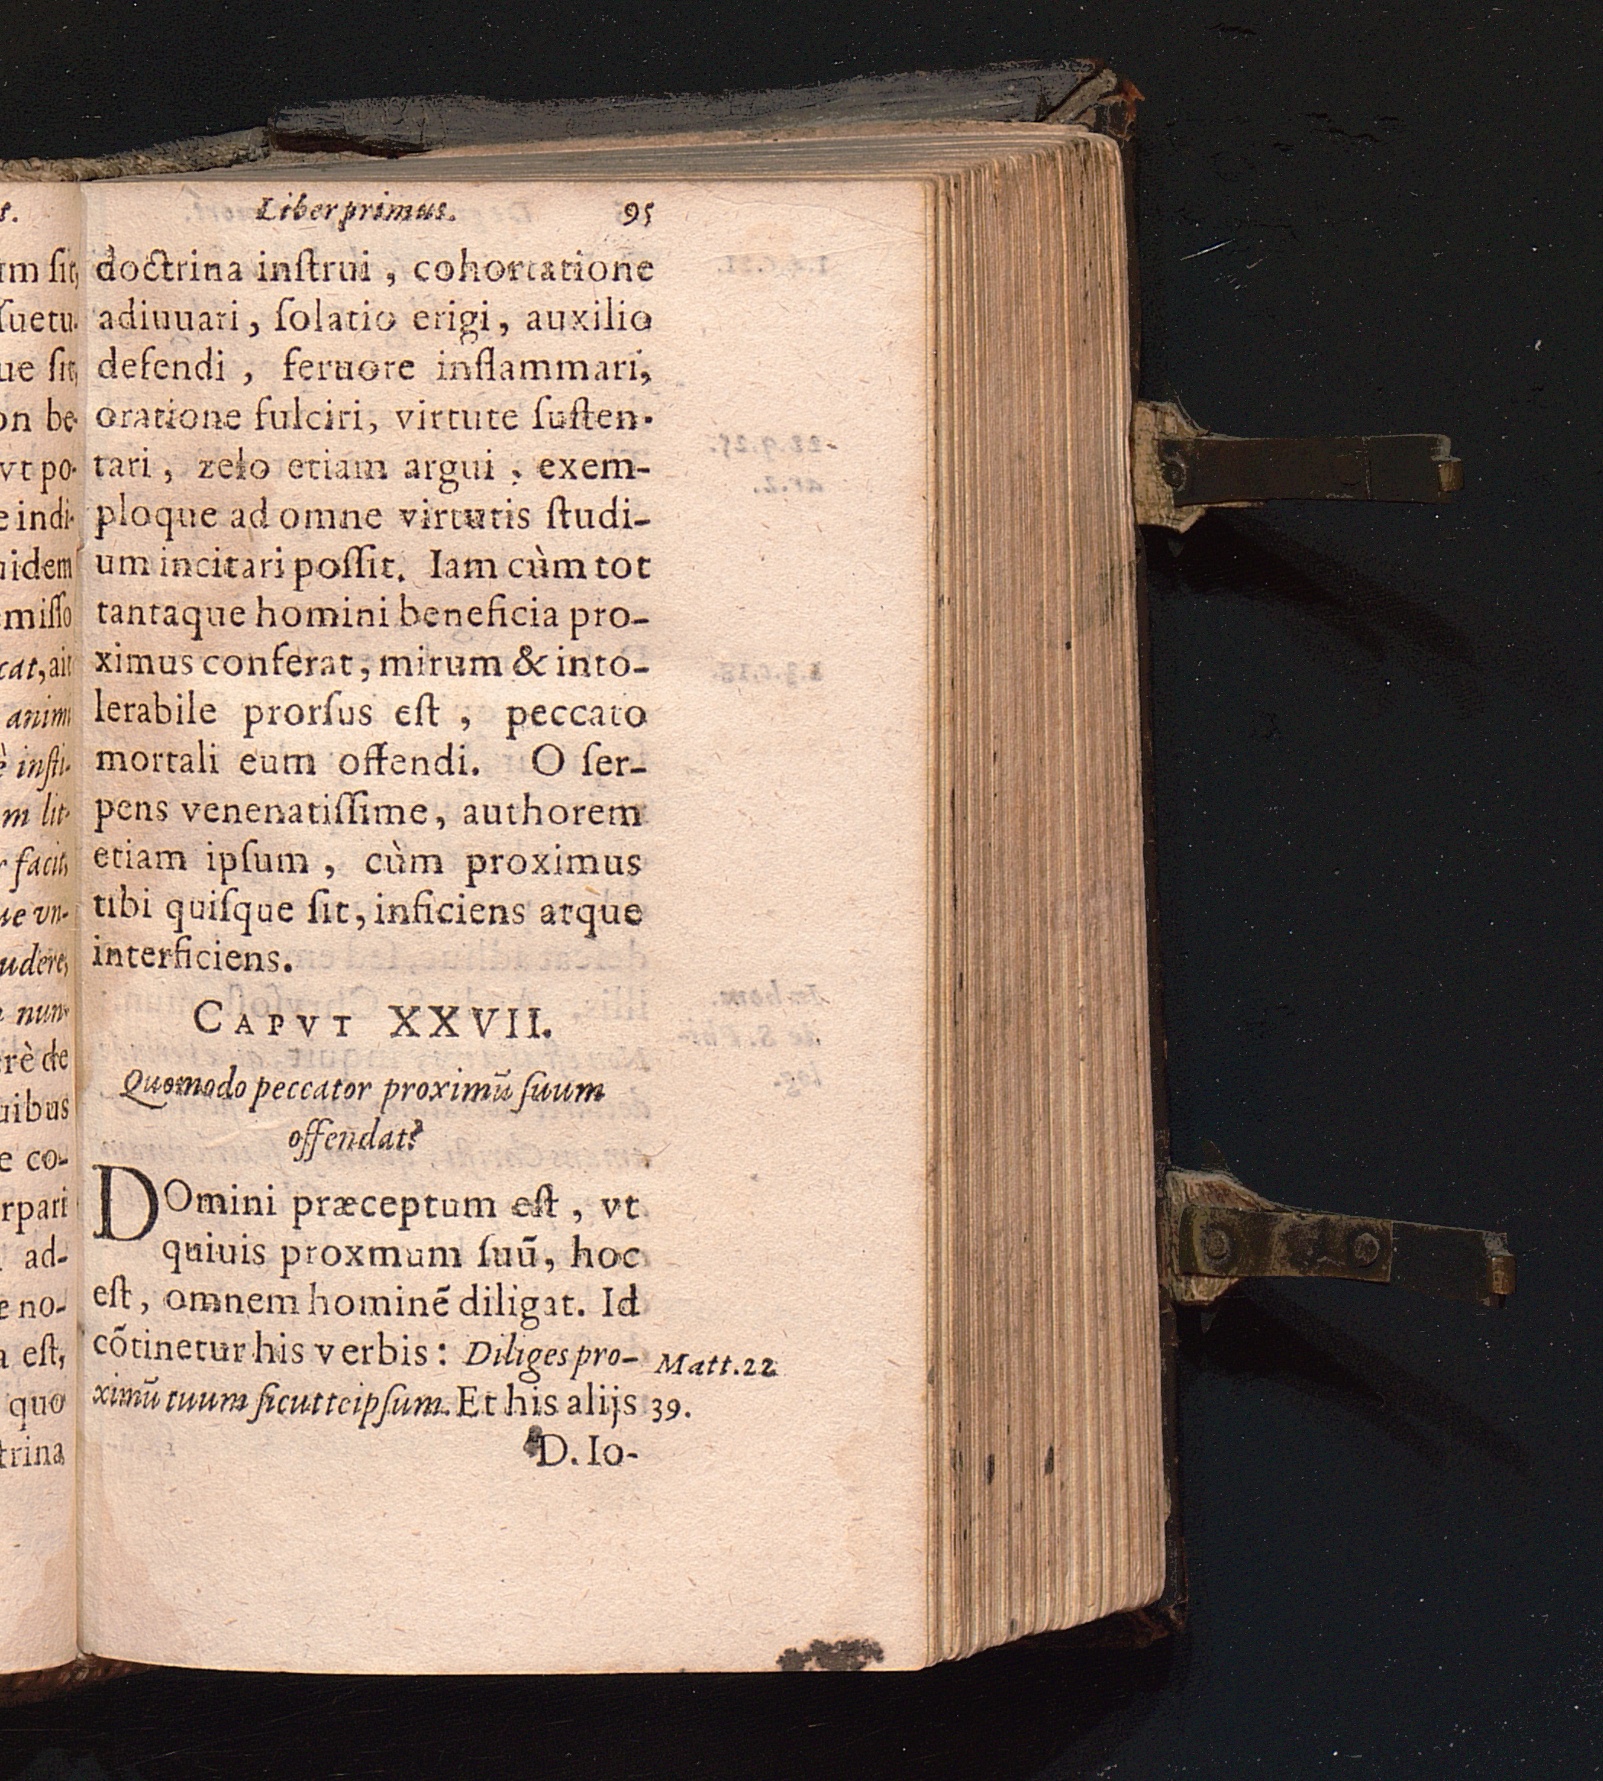 Liber primus. 95
doctrina inſtrui, cohortatione
adiuuari, ſolatio erigi, auxilio
defendi, feruore inflammari,
oratione fulciri, virtute ſuſten-
tari, zelo etiam argui, exem-
ploque ad omne virtutis ſtudi-
um incitari poſſit. Iam cùm tot
tantaque homini beneficia pro-
ximus conferat, mirum & into-
lerabile prorſus eſt, peccato
mortali eum offendi. O ſer-
pens venenatiſſime, authorem
etiam ipſum, cùm proximus
tibi quiſque ſit, inficiens atque
interficiens.
CAPVT XXVII.
Quomodo peccator proximũ ſuum
offendat?
DOmini præceptum eſt, vt
quiuis proxmum ſuũ, hoc
eſt, omnem hominẽ diligat. Id
cõtinetur his verbis: Diliges pro- Matt.22
ximũ tuum ſicut teipſum. Et his alijs 39.
D. Io-